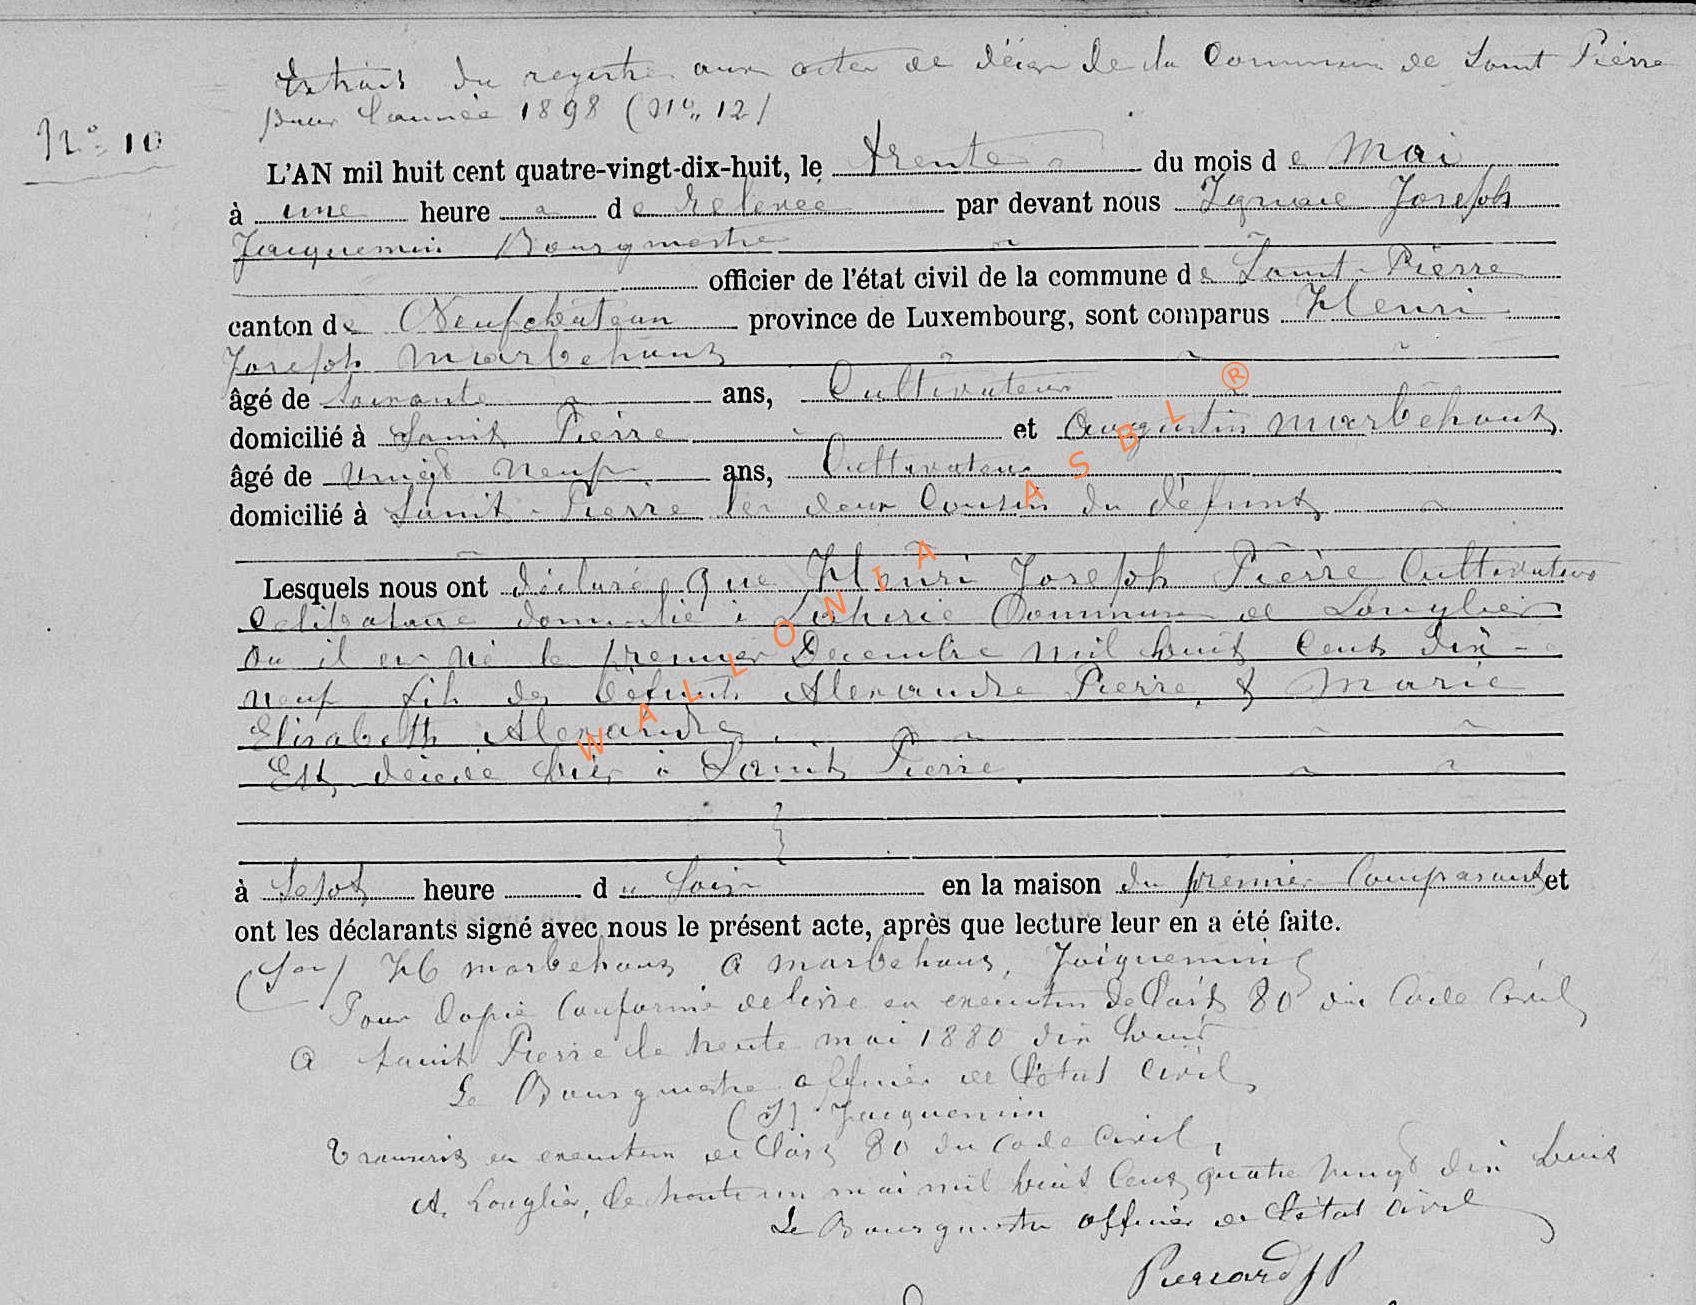 Extrait du registre aux actes de décès de la Commune de Saint Pierre
pour l'année 1898 (N° 12)
N° 10
L'AN mil huit cent quatre-vingt-dix-huit, le trente du mois de Mai
à une heure de Relevée par devant nous Ignace Joseph
Jacquemin Bourgmestre
officier de l'état civil de la commune de Saint-Pierre
canton de Neufchateau province de Luxembourg, sont comparus Henri
Joseph Marbehant
âgé de soixante ans, Cultivateur
domicilié à Saint Pierre et Augustin Marbehant
âgé de vingt neuf ans, Cultivateur
domicilié à Saint-Pierre les deux Cousins du défunt
Lesquels nous ont déclaré que Henri Joseph Pierre Cultivateur
Celibataire domicilié à Lahérie Commune de Longlier
où il est né le premier Decembre mil huit cent dix-
neuf fils des défunts Alexandre Pierre & Marie
Elisabeth Alexandre
Est décédé hier à Saint Pierre.
à Sept heure du Soir en la maison du premier Comparant et
ont les déclarants signé avec nous le présent acte, après que lecture leur en a été faite.
H marbehant A marbehant, Jacquemin
Pour Copie Conforme delivré en execution de l'art 80 du Code Civil
A Saint Pierre le trente mai 1880 dix huit
Le Bourgmestre officier de l'état Civil
(S) Jacquemin
Transcrit en execution de l'art 80 du Code Civil,
A Longlier, le trente un mai mil huit Cent quatre vingt dix huit
Le Bourgmestre officier de l'état Civil
Pierrard JP
WALLONIA ASBL ®